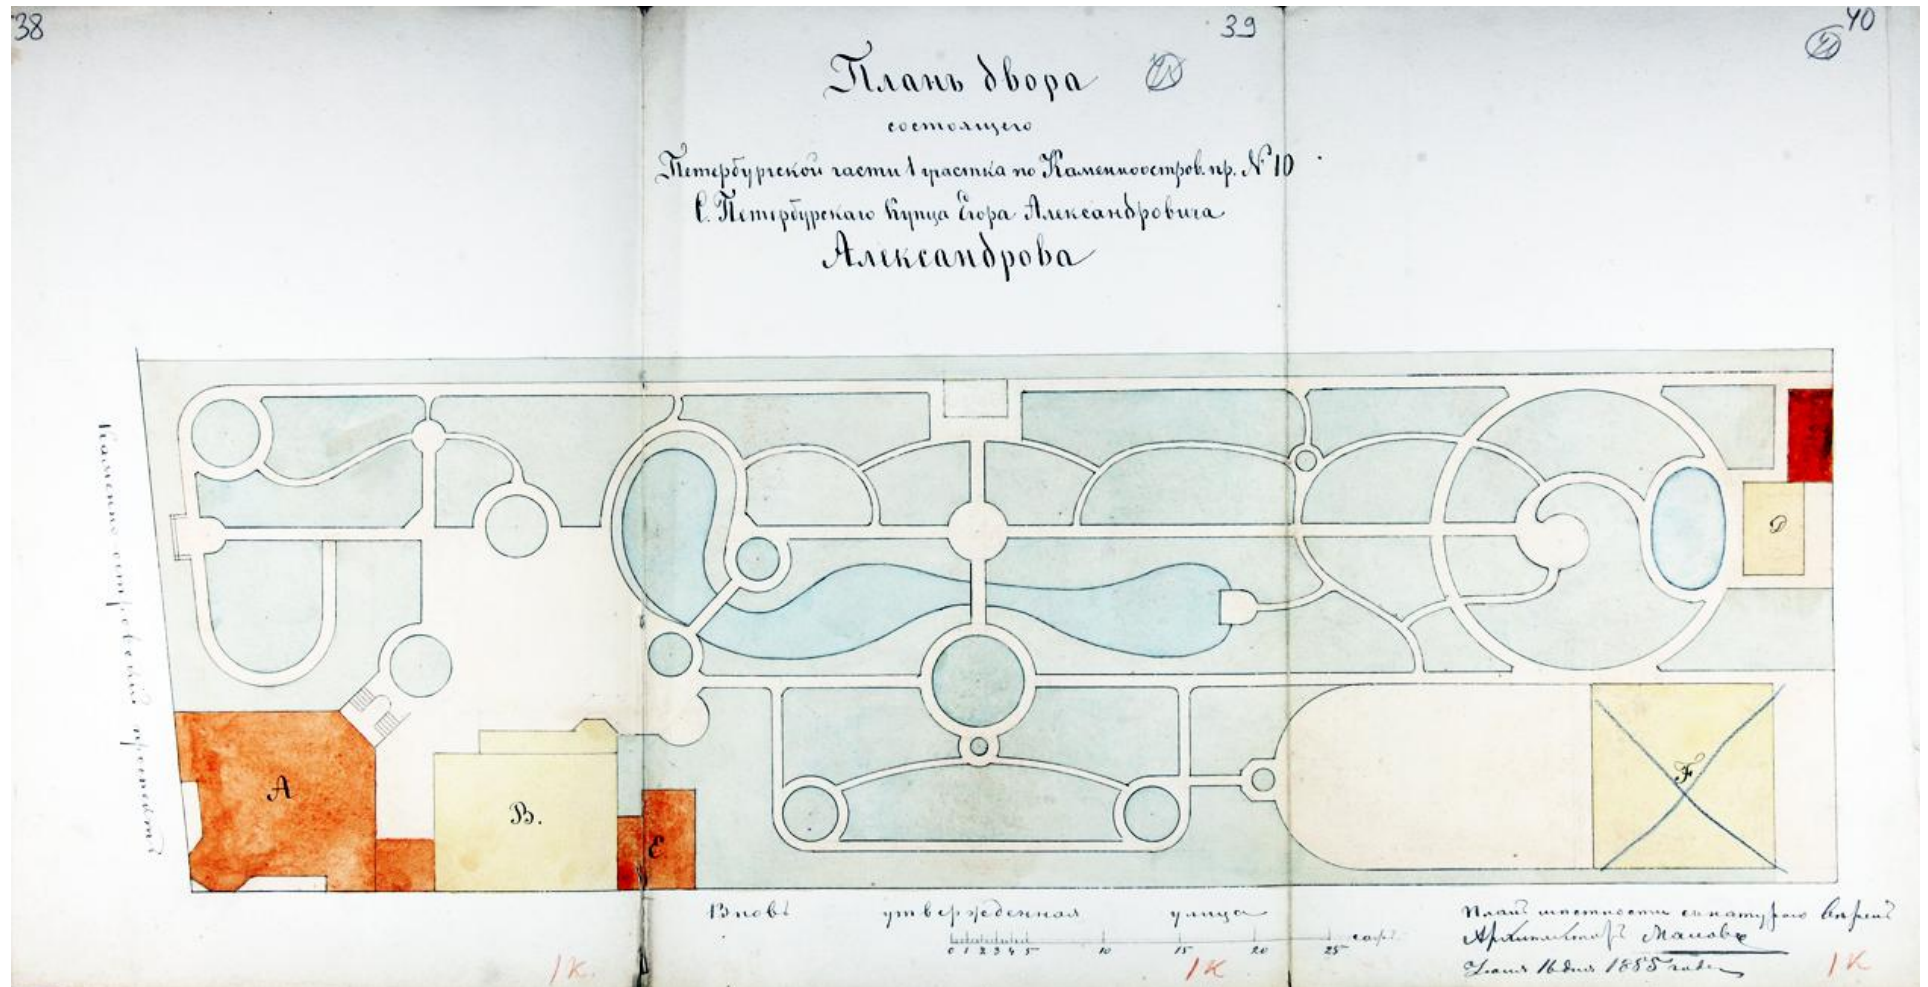 38
39
40
Планъ двора
состоящего
Петербургской части 1 участка по Каменноостров. пр. № 10
С. Петербурскаго Купца Егора Александровича
Александрова
Каменно-островский проспектъ
A
B.
E
D
F
Вновь утвержденная улица
0 1 2 3 4 5 10 15 20 25 саж.
Планъ местности съ натурою веренъ
Архитекторъ
Июня 16 дня 1885 года
1К.
1К
1К